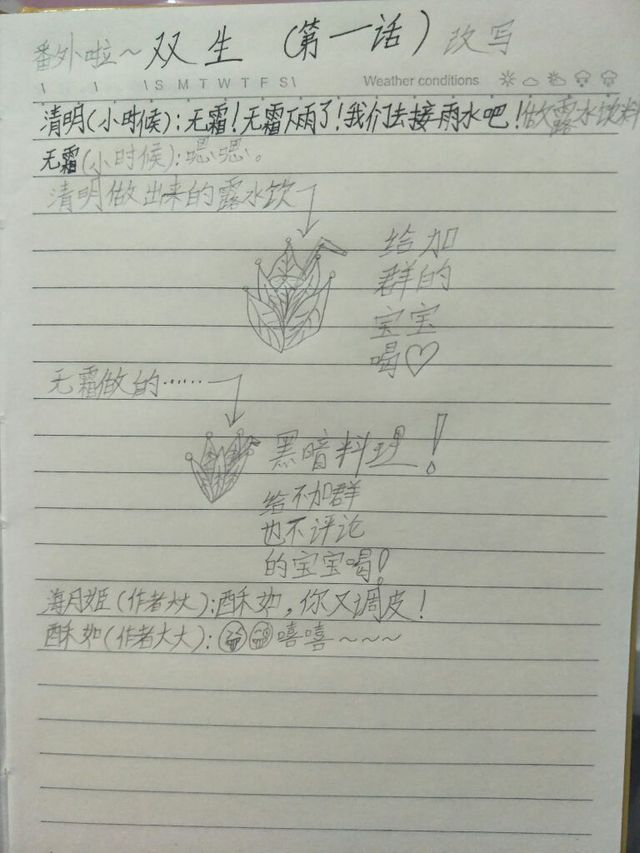 番外啦~ 双生（第一话）改写
\ \ \S M T W T F S\ Weather conditions
清明(小时候):无霜!无霜下雨了!我们去接雨水吧!做露水饮料
无霜(小时候):嗯嗯。
清明做出来的露水饮
给加
群的
宝宝
喝♡
无霜做的……
黑暗料理!
给不加群
也不评论
的宝宝喝!
海月姬(作者大大):酥如,你又调皮!
酥如(作者大大): 嘻嘻~~~